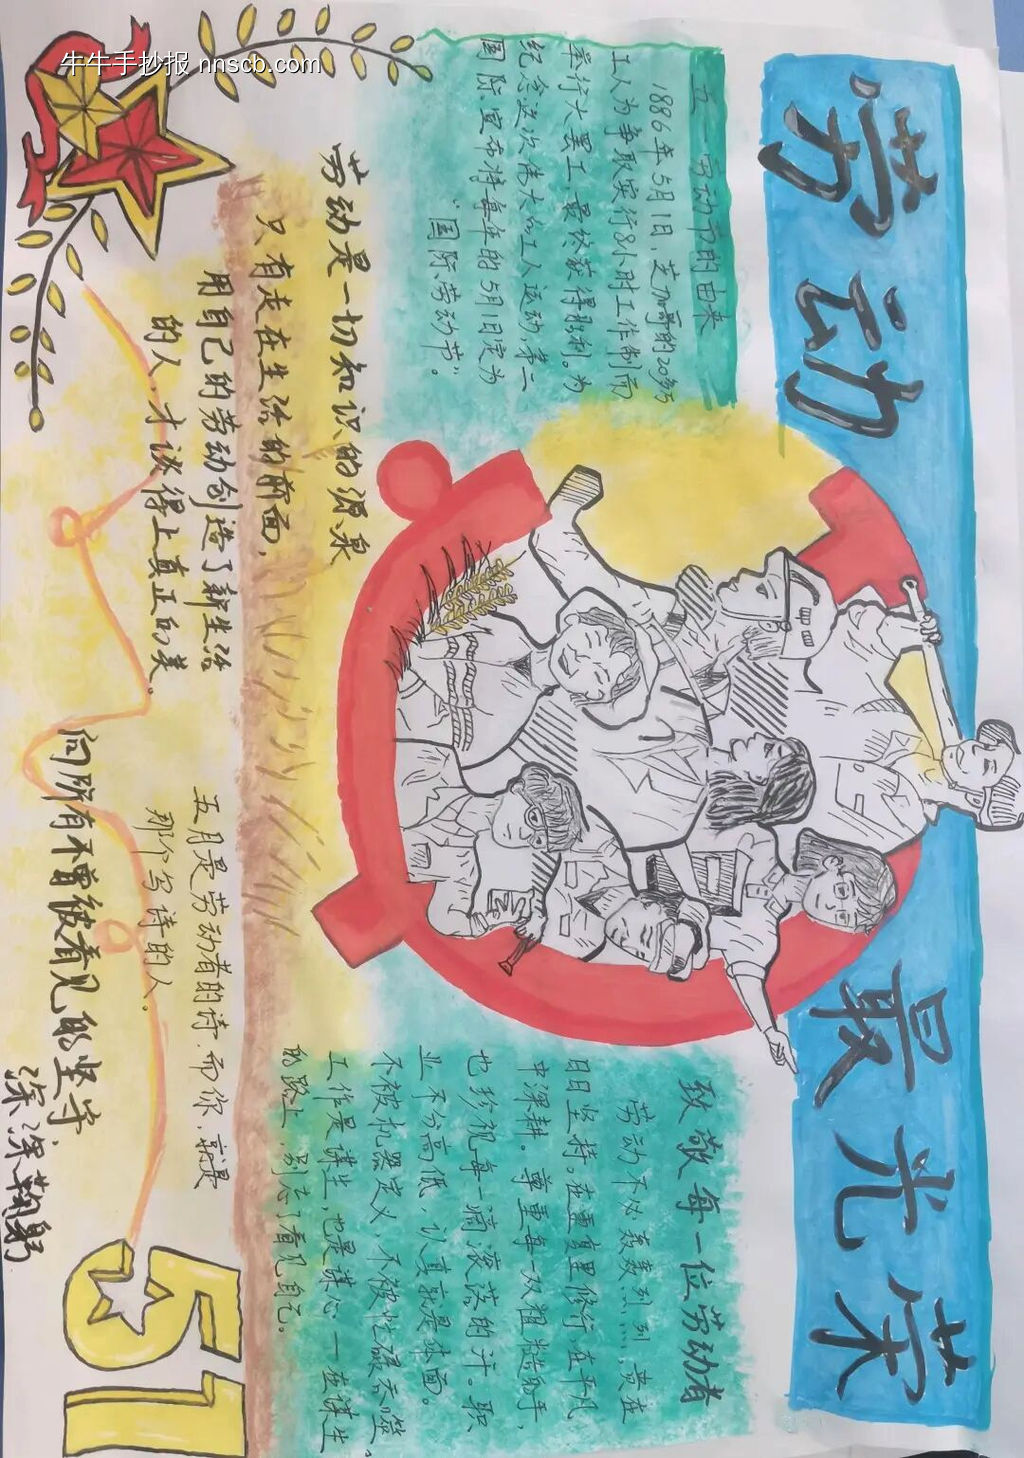 牛牛手抄报 nnscb.com
劳动最光荣
五一劳动节的由来
1886年5月1日，芝加哥的20多万
工人为争取实行8小时工作制而
举行大罢工，最终获得胜利。为
纪念这次伟大的工人运动，第二
国际宣布将每年的5月1日定为
“国际劳动节”。
劳动是一切知识的源泉
只有走在生活的前面，
用自己的劳动创造了新生活
的人，才谈得上真正的美。
致敬每一位劳动者
劳动不必轰轰烈烈，贵在
日日坚持。在重复里修行，在平凡
中深耕。尊重每一双粗糙的手，
也珍视每一滴滚落的汗。职
业不分高低，认真就是体面。
不被机器定义，不被忙碌吞噬。
工作是谋生，也是谋心——在谋生
的路上，别忘了看见自己。
五月是劳动者的诗，而你，就是
那个写诗的人。
向所有不曾被看见的坚守，
深深鞠躬
51